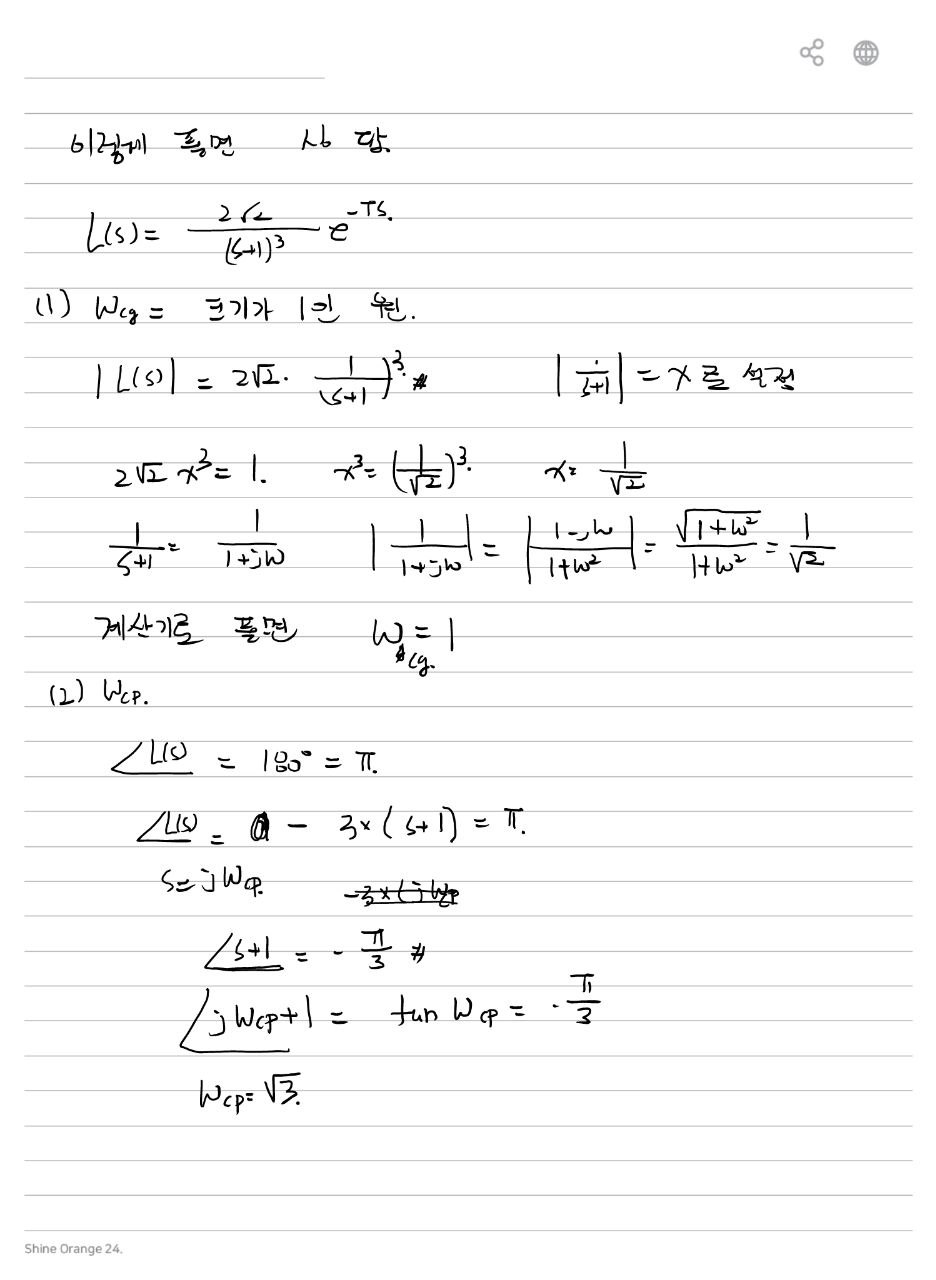 이렇게 풀면
L(s) = 2√2 / (s+1)³ e^-Ts.
(1) Wcg = 크기가 1인 주파수.
|L(s)| = 2√2 · (1 / (s+1))³. #  |1 / s+1| = x 로 설정
2√2 x³ = 1.  x³ = (1/√2)³.  x = 1/√2
1/s+1 = 1/1+jw  |1/1+jw| = |1-jw / 1+w²| = √1+w² / 1+w² = 1/√2
계산기로 풀면  Wcg. = 1
(2) Wcp.
∠L(s) = 180° = π.
∠L(s) = 0 - 3×(s+1) = π.
s = jWcp.  -3×(jWcp
∠s+1 = - π/3 #
∠jWcp+1 = tan Wcp = - π/3
Wcp = √3.
Shine Orange 24.